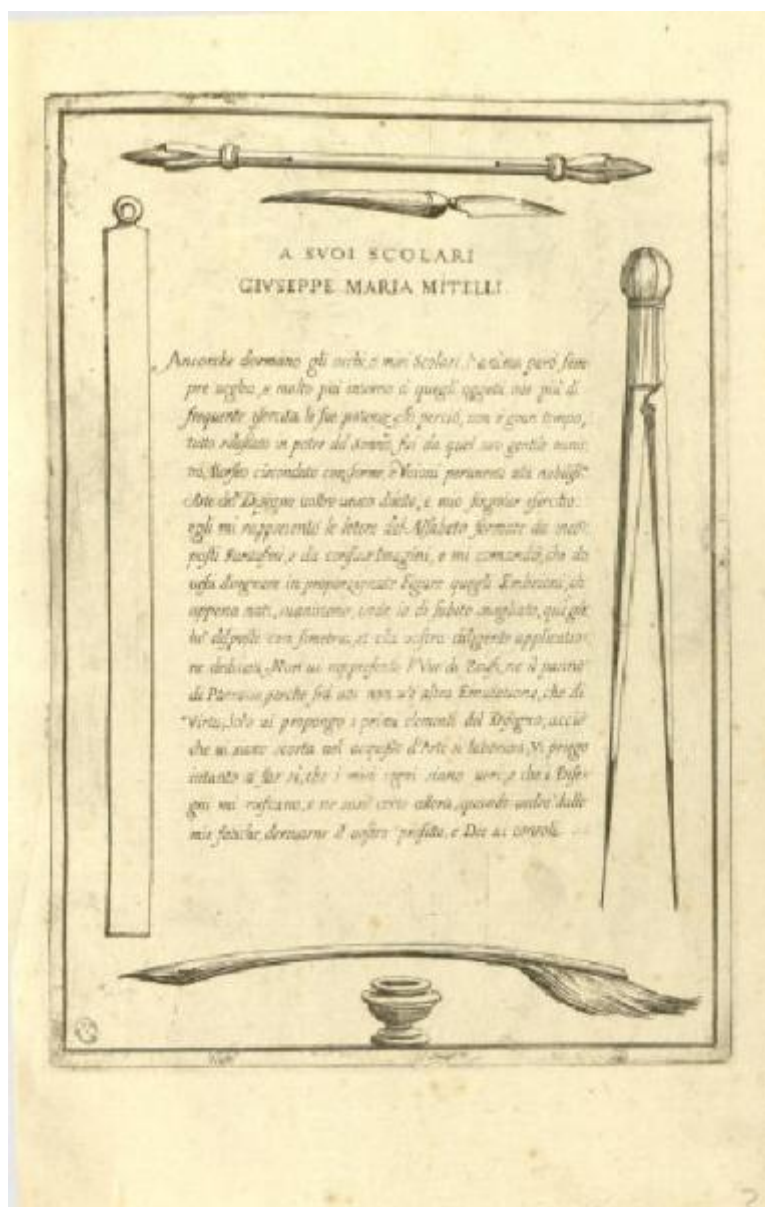 A SVOI SCOLARI
GIVSEPPE MARIA MITELLI
Ancorche dormano gli occhi, o miei Scolari, l'anima però sem
pre ueglia, e molto più intorno a quegli oggetti, oue più di
frequente esercita le sue potenze. Io perciò, non è gran tempo,
tutto rilasciato in potere del Sonno, fui da quel suo gentile minis
tro, Morfeo circondato con forme, e Visioni pertinenti alla nobiliss.
Arte del Disegno uostro unico diletto, e mio singolar esercitio.
egli mi rappresentò le lettere del Alfabeto formate da
posti Fantasmi, e da confuse Imagini, e mi comandò, che do
uessi disegnare in proporzionate Figure quegli Embrioni, ch
appena nati, suanirono, onde io di subito suegliato, qui gli
hò disposti con simetria, et alla uostra diligente applicatio
ne dedicati. Non ui rappresento
di Parnaso, perche frà uoi non u'è altra Emulatione, che di
Virtù, solo ui propongo i primi elementi del Disegno, acciò
che ui siano scorta nel acquisto d'Arte si laboriosa, Vi priego
intanto a far sì, che i miei sogni siano ueri, e che i Dise
gni mi riescano, e ne sarò certo allora, quando uedrò dalle
mie fatiche, deriuarne il uostro profitto, e Dio ui consoli.